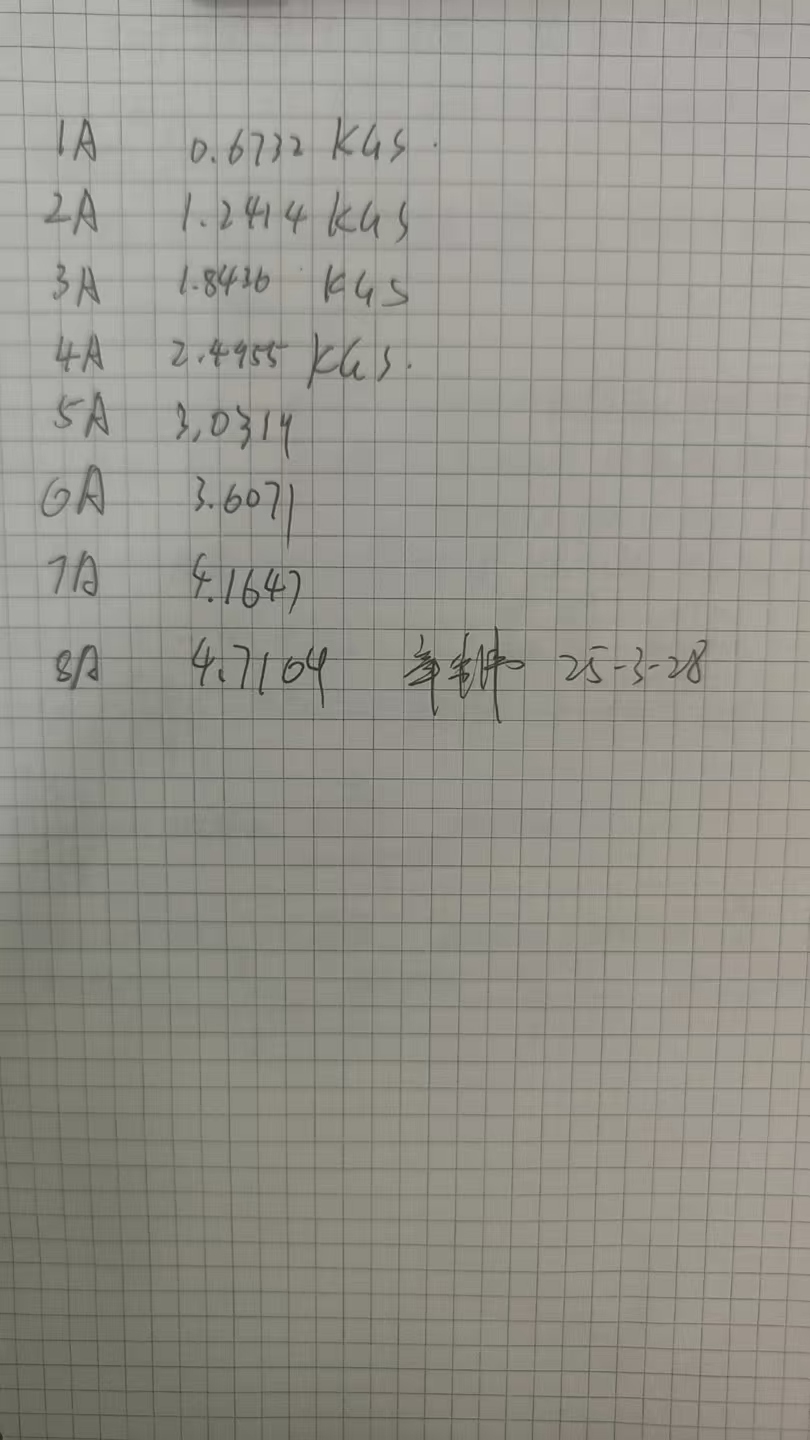 1A 0.6732 KGS.
2A 1.2414 KGS
3A 1.8436 KGS
4A 2.4955 KGS.
5A 3.0314
6A 3.6071
7A 4.1647
8A 4.7104 25-3-28